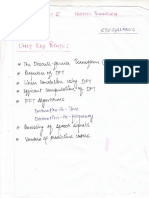 UNIT KEY POINTS:
* The Discrete-Fourier Transform
* Properties of DFT
* Linear Convolution using DFT
* Efficient Computation of DFT
* FFT algorithms
Decimation-In-Time
Decimation-In-frequency
* Processing of speech signals
* Vocoders of predictive